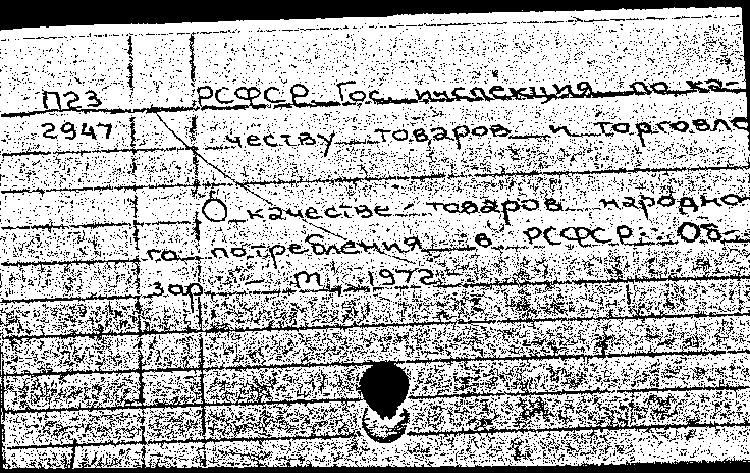 П23 РСФСР. Гос. инспекция по ка-
2947 честву товаров и торговле
О качестве товаров народно-
го потребления в РСФСР. Об-
зор – М., 1972 –